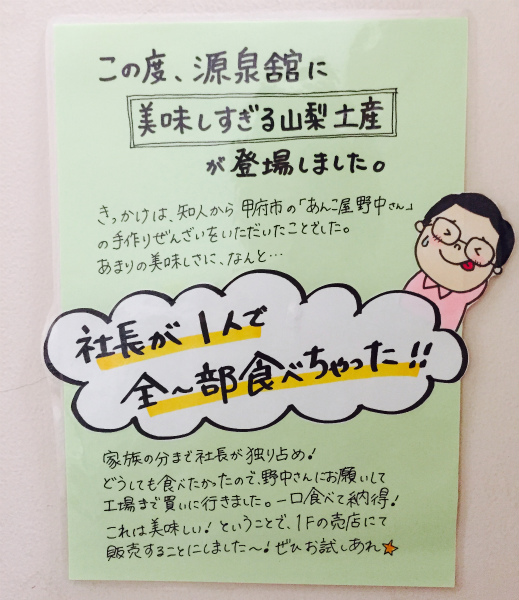 この度、源泉舘に
美味しすぎる山梨土産
が登場しました。
きっかけは、知人から甲府市の「あんこ屋野中さん」
の手作りぜんざいをいただいたことでした。
あまりの美味しさに、なんと…
社長が1人で
全〜部食べちゃった!!
家族の分まで社長が独り占め!
どうしても食べたかったので、野中さんにお願いして
工場まで買いに行きました。一口食べて納得!
これは美味しい!ということで、1Fの売店にて
販売することにしました〜!ぜひお試しあれ☆